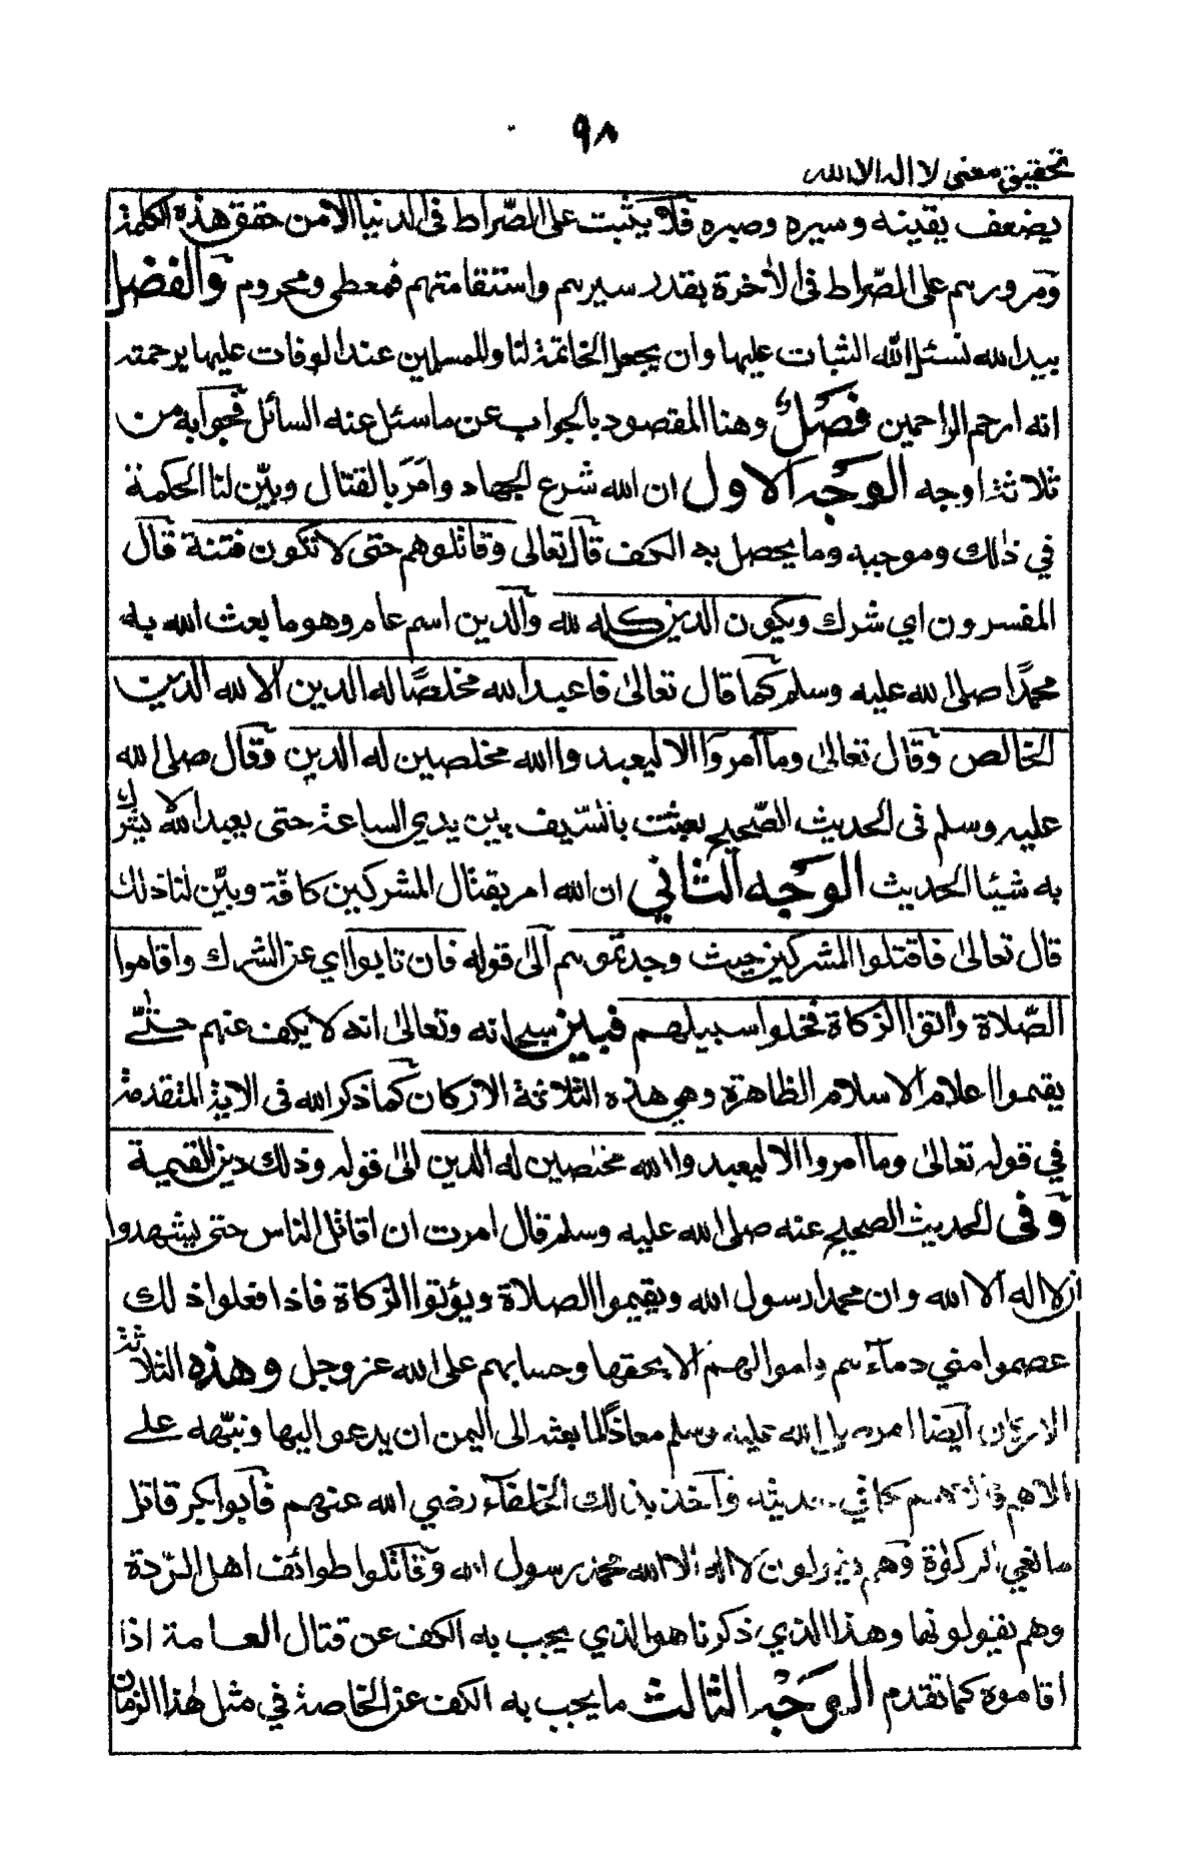 ٩٨
تحقيق معنى لا اله الا الله
يضعف يقينه وسيره وصبره فلا يثبت على الصّراط في الدنيا الا من حقق هذه الكلمة
ومرورهم على الصّراط في الأخرة بقدر سيرهم واستقامتهم فمعطى ومحروم والفضل
بيد الله نسئل الله الثبات عليها وان يجعل الخاتمة لنا وللمسلمين عند الوفات عليها برحمته
انه ارحم الراحمين فصل وهنا المقصود بالجواب عن ما سئل عنه السائل فجوابه من
ثلاثة اوجه الوجه الاول ان الله شرع الجهاد وامر بالقتال وبيّن لنا الحكمة
في ذلك وموجبه وما يحصل به الكف قال تعالى وقاتلوهم حتى لا تكون فتنة قال
المفسرون اي شرك ويكون الدين كله لله والدين اسم عام وهو ما بعث الله به
محمدًا صلى الله عليه وسلم كما قال تعالى فاعبد الله مخلصًا له الدين الا لله الدين
الخالص وقال تعالى وما أمروا الا ليعبدوا الله مخلصين له الدين وقال صلى الله
عليه وسلم في الحديث الصّحيح بعثت بالسّيف بين يدي الساعة حتى يعبد الله لا يشرك
به شيئا الحديث الوجه الثاني ان الله امر بقتال المشركين كافّة وبيّن لنا ذلك
قال تعالى فاقتلوا المشركين حيث وجدتموهم الى قوله فان تابوا اي عن الشرك واقاموا
الصّلاة واتوا الزكاة فخلوا سبيلهم فبين سبحانه وتعالى انه لا يكف عنهم حتّى
يقيموا اعلام الاسلام الظاهرة وهي هذه الثلاثة الاركان كما ذكر الله في الاية المتقدمة
في قوله تعالى وما أمروا الا ليعبدوا الله مخلصين له الدين الى قوله وذلك دين القيمة
وفى الحديث الصحيح عنه صلى الله عليه وسلم قال امرت ان اقاتل الناس حتى يشهدوا
ان لا اله الا الله وان محمدا رسول الله ويقيموا الصلاة ويؤتوا الزكاة فاذا فعلوا ذلك
عصموا مني دماءهم واموالهم الا بحقها وحسابهم على الله عز وجل وهذه الثلاثة
الاركان أيضا امر صلى الله عليه وسلم معاذًا لما بعثه الى اليمن ان يدعو اليها ونبّهه على
الاهم فالاهم كما في حديثه وأخذ بذلك الخلفاء رضي الله عنهم فأبو بكر قاتل
مانعي الزكوة وهم يقولون لا اله الا الله محمد رسول الله وقاتلوا طوائف اهل الرّدة
وهم يقولونها وهذا الذي ذكرنا هو الذي يجب به الكف عن قتال العامة اذا
اقاموه كما تقدم الوجه الثالث ما يجب به الكف عن الخاصة في مثل هذا الزمان